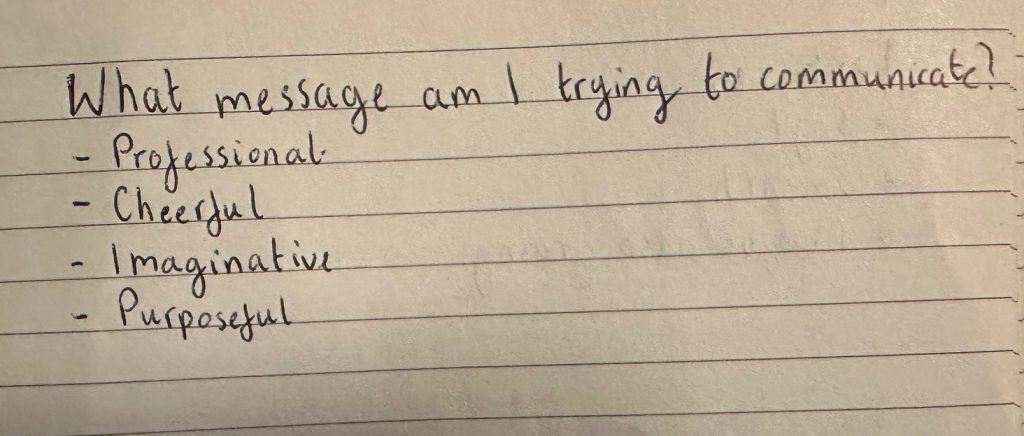 What message am I trying to communicate?
- Professional
- Cheerful
- Imaginative
- Purposeful